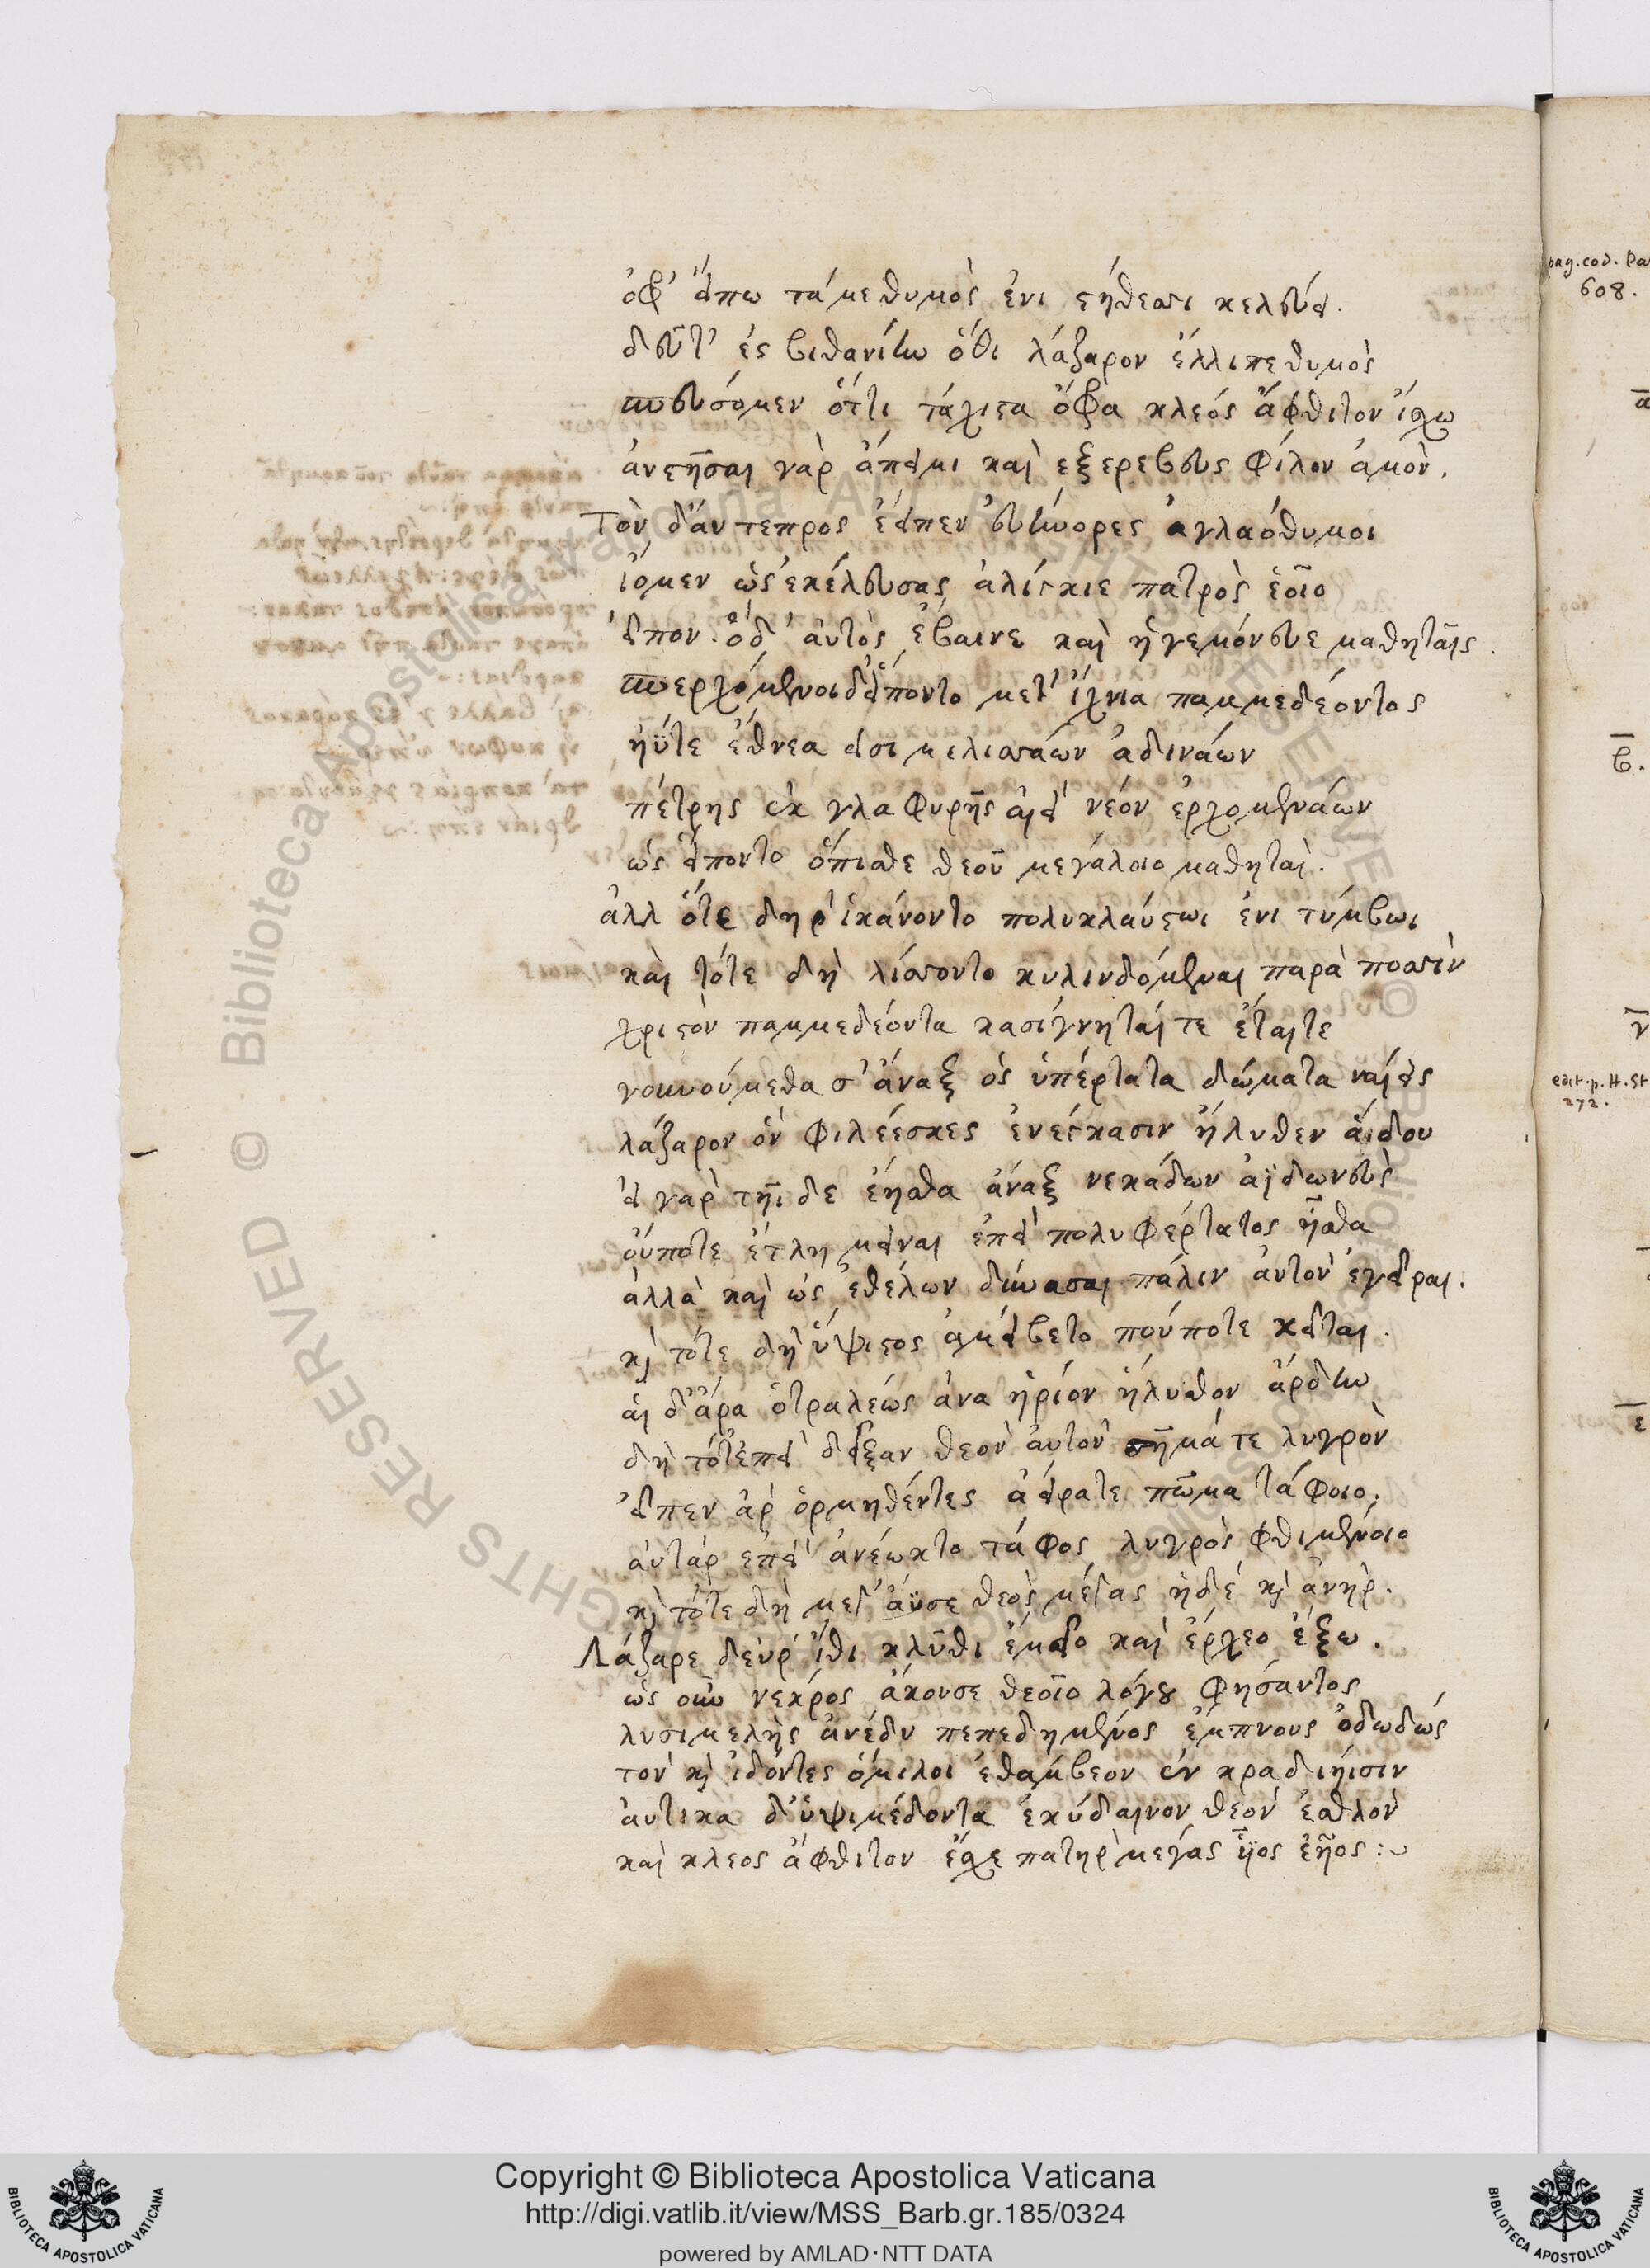 ὀφρ' εἴπω τά με θυμὸς ἐνι στήθεσσι κελεύει.
δεῦτ' ἐς βιθανίην ὅθι λάζαρον ἔλλιπε θυμὸς
πορευσόμεν ὅττι τάχιστα ὄφρα κλεός ἄφθιτον ἴσχω
ἀνστῆσαι γὰρ ἄπειμι καὶ ἐξερεβευς φίλον ἀμὸν.
Τὸν δ'άν τεπρος ἔειπεν εὐήνορες ἀγλαόθυμοι
ἴομεν ὡς ἐκέλευσας ἀλίγκιε πατρὸς ἑοῖο
εἶπον. ὅδ' ἀυτὸς ἔβαινε καὶ ἡγεμόνευε μαθηταῖς.
ερχόμενοι δ' εἵποντο μετ' ἴχνια παμμεδέοντος
ἠΰτε ἔθνεα εἰσι μελισσάων ἀδινάων
πέτρης ἐκ γλαφυρῆς αἰεὶ νέον ἐρχομενάων
ὡς εἵποντο ὄπισθε θεοῦ μεγάλοιο μαθηταὶ.
ἀλλ ὅτε δηρ' ἱκάνοντο πολυκλαύστωι ἐνι τύμβωι
καὶ τότε δὴ λίσσοντο κυλινδόμεναι παρὰ ποσσὶν
χριστὸν παμμεδέοντα κασίγνηταί τε ἔταιτε
γουνούμεθα σ' ἄναξ ὁς ὑπέρτατα δώματα ναίεις
λάζαρον ὁν φιλέεσκες ἐνείκασιν ἤλυθεν ἄιδου
εἰ γαρ τῆιδε ἔησθα ἄναξ νεκάδων ἀϊδωνεὺς
οὔποτε ἔτλη μεῖναι ἐπεὶ πολυφέρτατος ἦσθα
ἀλλὰ καὶ ὡς ἐθέλων δύνασαι πάλιν ἀυτὸν ἐγεῖραι.
κ τότε δὴ ὕψιστος ἀμείβετο πούποτε κεῖται.
αἱ δ'ἄρα ὀτραλέως ἀνα ἠρίον ἠλυθον ἄρδην
δὴ τότ' ἐπεὶ δεῖξαν θεον ἀυτὸν σῆμά τε λυγρὸν
εἶπεν ἀρ ὁρμηθέντες ἀείρατε πῶμα τάφοιο.
ἀυτάρ επεὶ ἀνέωκτο τάφος λυγρὸς φθιμένοιο
κ τότε δὴ μεγ' άϋσε θεὸς μέγας ἠδέ κ ἀνηρ.
Λάζαρε δεὺρ' ἴθι κλῦθι ἐμεῖο καὶ ἔρχεο ἔξω.
ὡς οὖν νεκρος ἄκουσε θεοῖο λόγȣ φησάντος
λυσιμελὴς ἀνέδυ πεπεδημένος ἔμπνους ὀδωδώς
τον κ ἰδόντες ὅμιλοι ἐθάμβεον ἐν κραδιήισιν
ἀυτικα δ'ὑψιμέδοντα ἐκύδαινον θεὸν ἐσθλὸν
καὶ κλεος ἄφθιτον ἔσχε πατηρ μεγάς ϋἱος ἑῆος :~
pag. cod. Pa
608.
α
β.
γ
edit. p. H. St
272.
ε
Copyright © Biblioteca Apostolica Vaticana
http://digi.vatlib.it/view/MSS_Barb.gr.185/0324
powered by AMLAD·NTT DATA